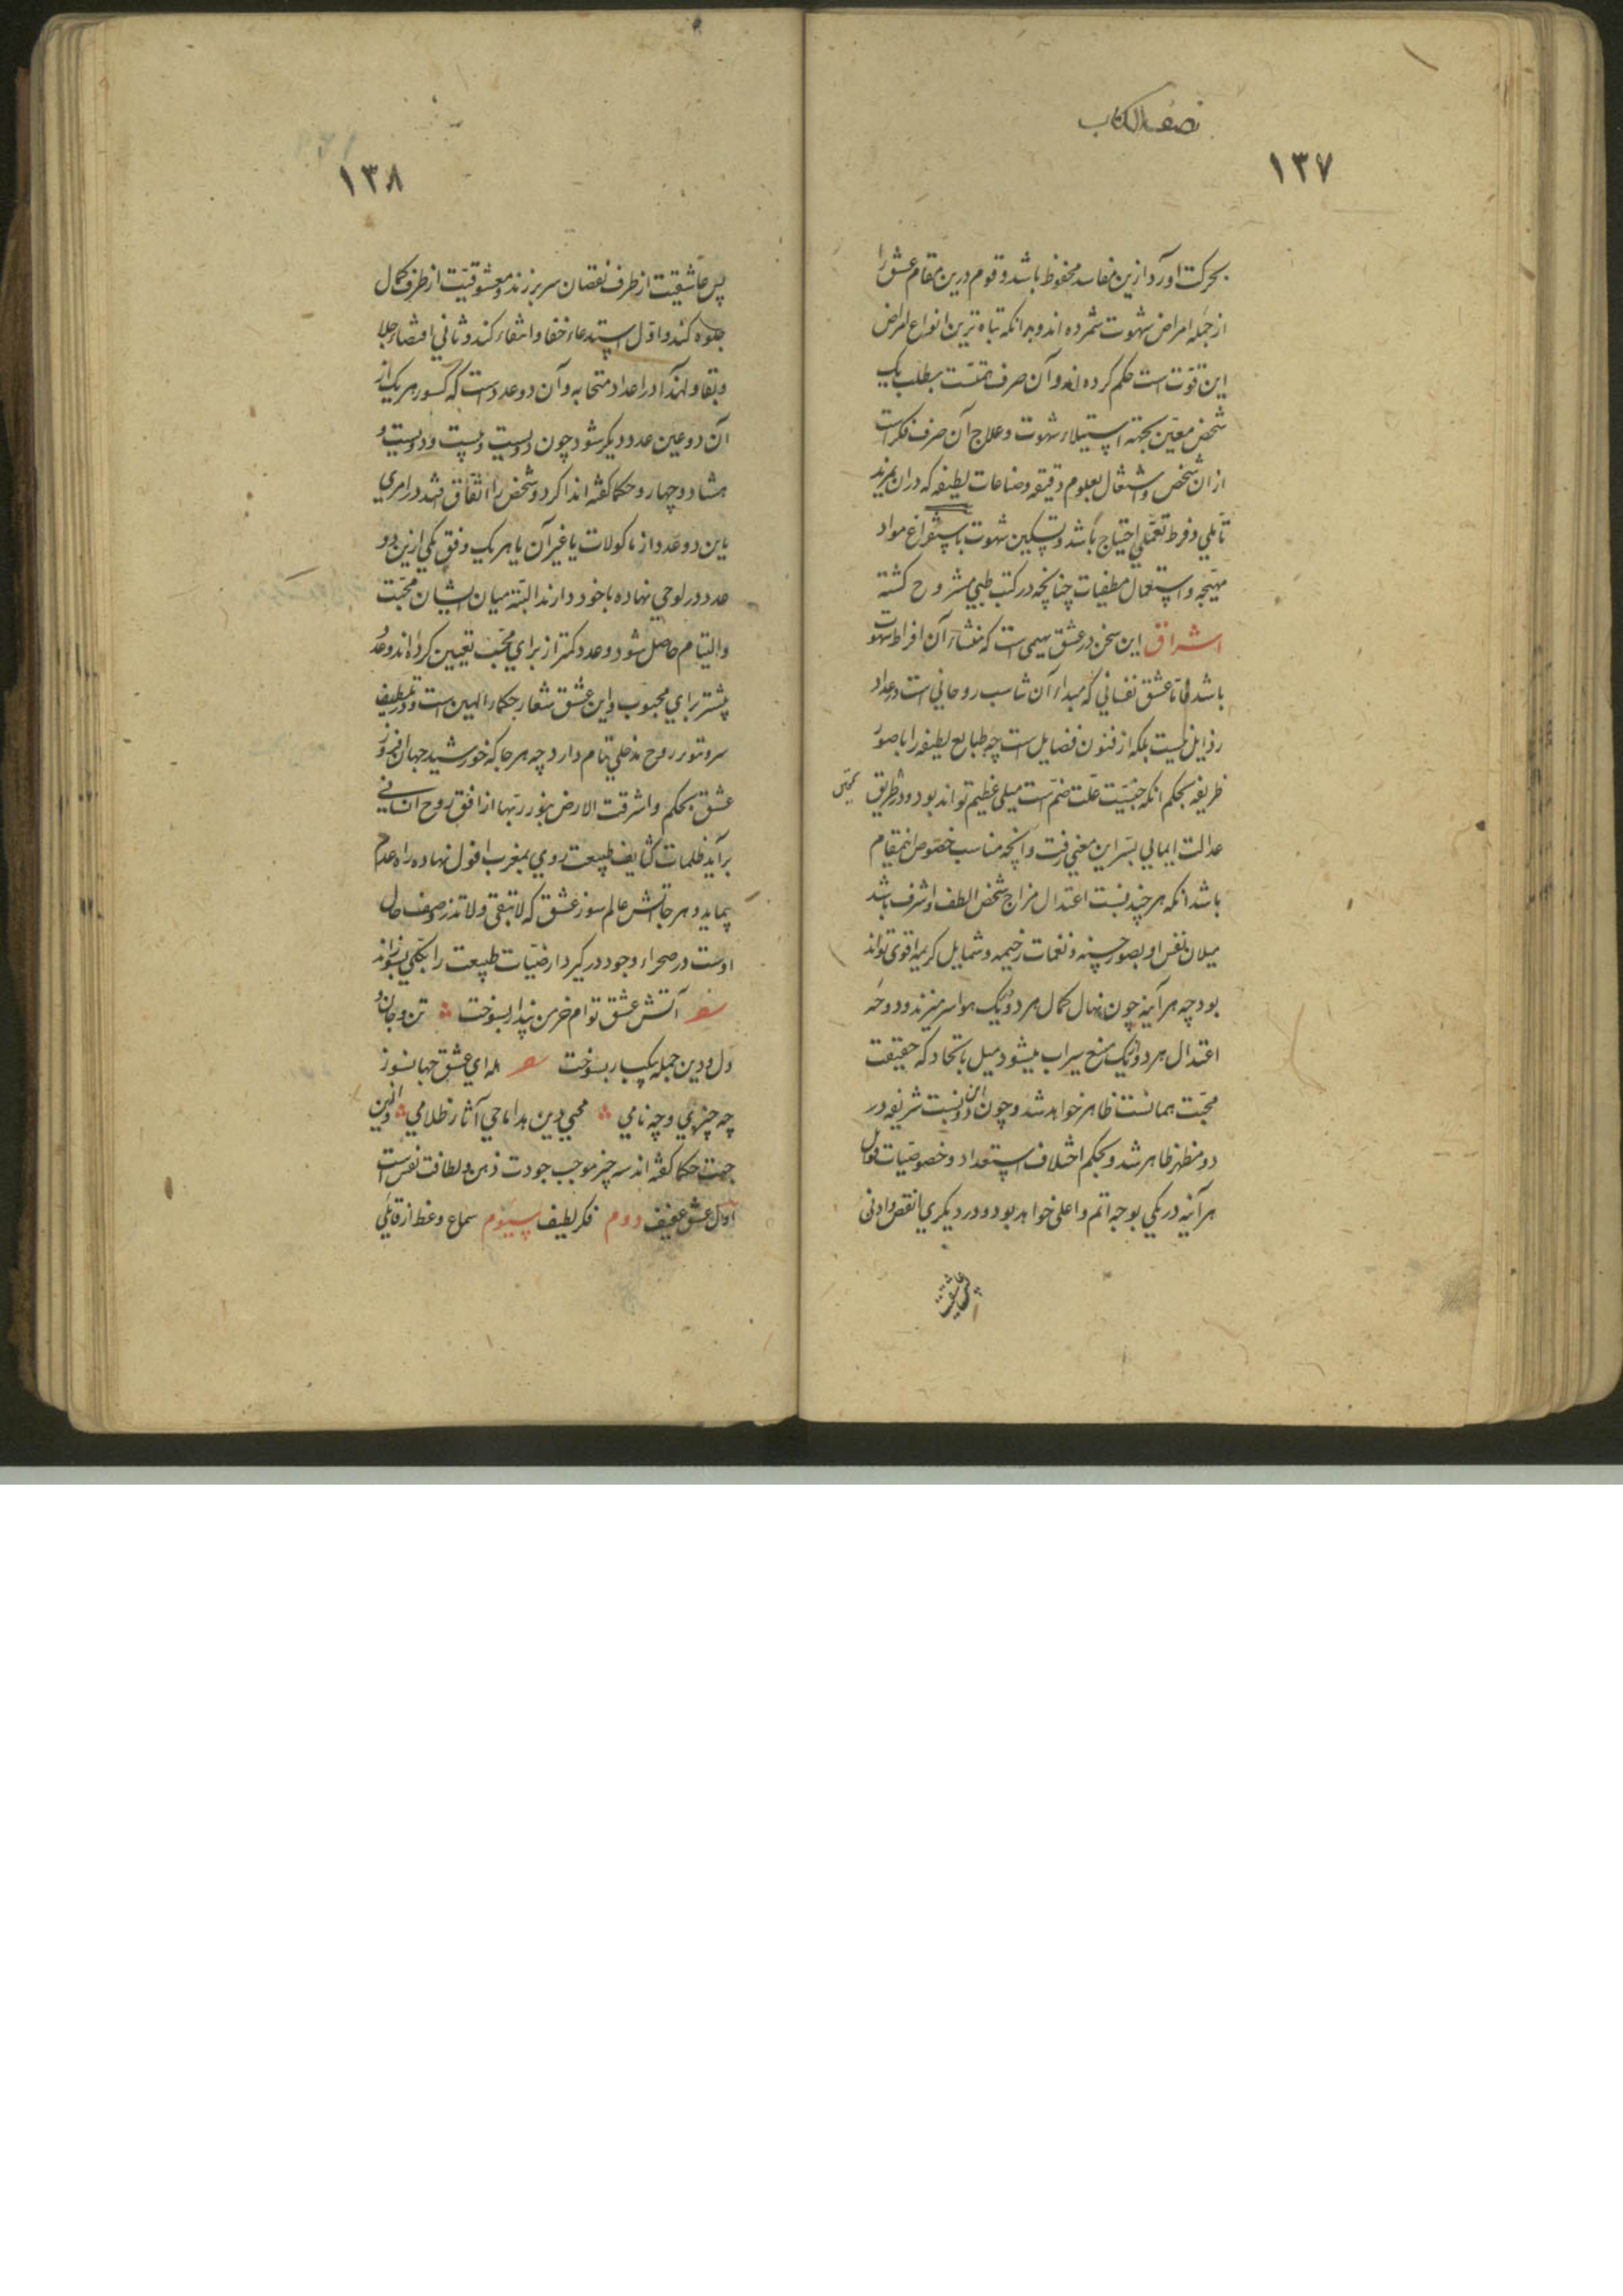 نصف الکتاب
۱۳۷
بحرکت اورد ازین مفاسد محفوظ باشد و قوم درین مقام عشق را
از جمله امراض شهوت شمرده اند و بر انکه تباه ترین انواع امراض
این قوّت است حکم کرده اند و آن صرف همّتست بطلب یک
شخص معیّن بجهة استیلاء شهوت و علاج آن صرف فکر است
از ان شخص و اشتغال بعلوم دقیقه و صناعات لطیفه که در ان بمزید
تأملی و فرط تعملی احتیاج باشد و تسکین شهوت باستفراغ مواد
مهیّجه و استعمال مطفیات چنانچه در کتب طبی مشروح کشته
اشراق این سخن در عشق بهیمی است که منشاء آن افراط شهوت
باشد فامّا عشق نفسانی که مبداء آن تناسب روحانی است در عداد
رذایل نیست بلکه از فنون فضایل است چه طبایع لطیفه را با صور
ظریفه بحکم انکه جنسیّت علّت ضم است میلی عظیم تواند بود و در طریق
عدالت ایمایی بسرّ این معنی رفت و انچه مناسب خصوص اینمقام
باشد انکه هر چند نسبت اعتدال مزاج شخص الطف و اشرف باشد
میلان نفس او بصور حسنه و نغمات رخیمه و شمایل کریمه اقوی تواند
بود چه هر آینه چون نهال کمال هر دو از یک هوا سر میزند و دوحه
اعتدال هر دو از یک منبع سیراب میشود میل باتحاد که حقیقت
محبّت همانست ظاهر خواهد شد و چون این دو نسبت شریفه در
دو مظهر ظاهر شد و بحکم اختلاف استعداد و خصوصیات قوابل
هر آینه در یکی بوجه اتم و اعلی خواهد بود و در دیکری انقص و ادنی
پس عاشقیت
۱۳۸
پس عاشقیت از طرف نقصان سر بر زند و معشوقیّت از طرف کمال
جلوه کند و اوّل استدعاء خفا و انتفاء کند و ثانی اقتضاء جلا
و بقا و لهذا در اعداد متحابه و آن دو عدد است که کسور هر یک از
آن دو عین عدد دیکر شود چون دویست و بیست و دویست و
هشتاد و چهار و حکما کفته اند اکر دو شخص را اتّفاق افتد در امری
باین دو عدد از ماکولات یا غیر آن یا هر یک وفق یکی ازین دو
عدد در لوحی نهاده با خود دارند البتّه میان ایشان محبّت
و التیام حاصل شود و عدد کمتر از برای محبّ تعیین کرده اند و عدد
بیشتر برای محبوب و این عشق شعار حکماء الهیین است و در تلطیف
سر و تنویر روح مدخلی تمام دارد چه هر جا که خورشید جهان افروز
عشق بحکم و اشرقت الارض بنور ربّها از افق روح انسانی
برآید ظلمات کثایف طبیعت روی بمغرب افول نهاده راه عدم
پیماید و هر جا آتش عالم سوز عشق که لا تبقی و لا تذر وصف حال
اوست در صحراء وجود در کیرد ارضیّات طبیعت را بکلّی بسوزاند
آتش عشق توام خرمن پندار بسوخت تن و جان و
دل و دین جمله بیکبار بسوخت هله ای عشق جهانسوز
چه چیزی و چه نامی محیی دین هدا ماحی آثار ظلامی و ازین
جهت حکما کفته اند سه چیز موجب جودت ذهن و لطافت نفس است
اول عشق عفیف دوم فکر لطیف سیوم سماع وعظ از قائلی